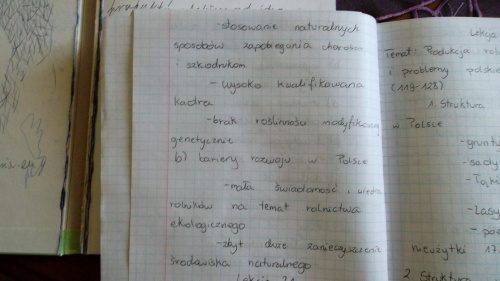 produkt
- stosowanie naturalnych
sposobów zapobiegania chorobom
i szkodnikom
- wysoko kwalifikowana
kadra
- brak roślinności modyfikowanej
genetycznie
b) bariery rozwoju w Polsce
- mała świadomość i wiedza
rolników na temat rolnictwa
ekologicznego
- zbyt duże zanieczyszczenie
środowiska naturalnego
Lekcja 21
Lekcja
Temat: Produkcja roln
i problemy polskie
(119-123)
1. Struktura
w Polsce
- grunty
- sady
- Łąki
- Lasy
- poz
nieużytki 17.
2. Struktura